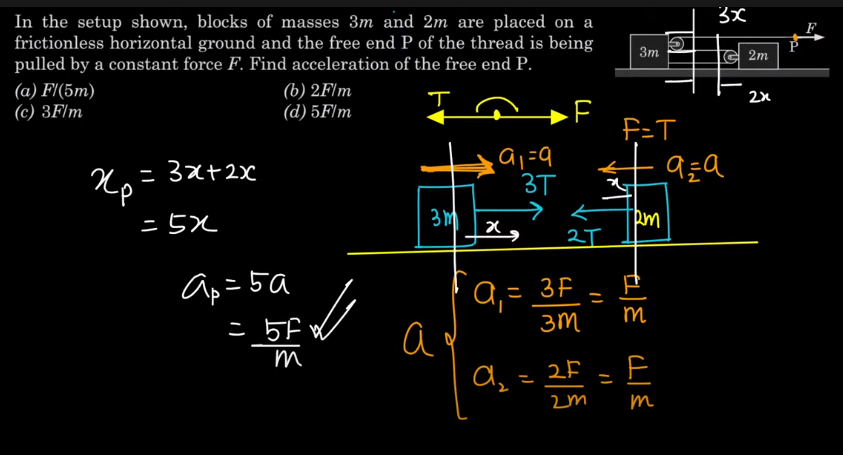 In the setup shown, blocks of masses 3m and 2m are placed on a
frictionless horizontal ground and the free end P of the thread is being
pulled by a constant force F. Find acceleration of the free end P.
(a) F/(5m) (b) 2F/m
(c) 3F/m (d) 5F/m
3x
F
3m
P
2m
2x
T
F
F=T
a₁=a
a₂=a
3T
x
3m
x
2T
2m
xₚ = 3x+2x
= 5x
aₚ = 5a
= 5F/m
a
a₁ = 3F/3m = F/m
a₂ = 2F/2m = F/m